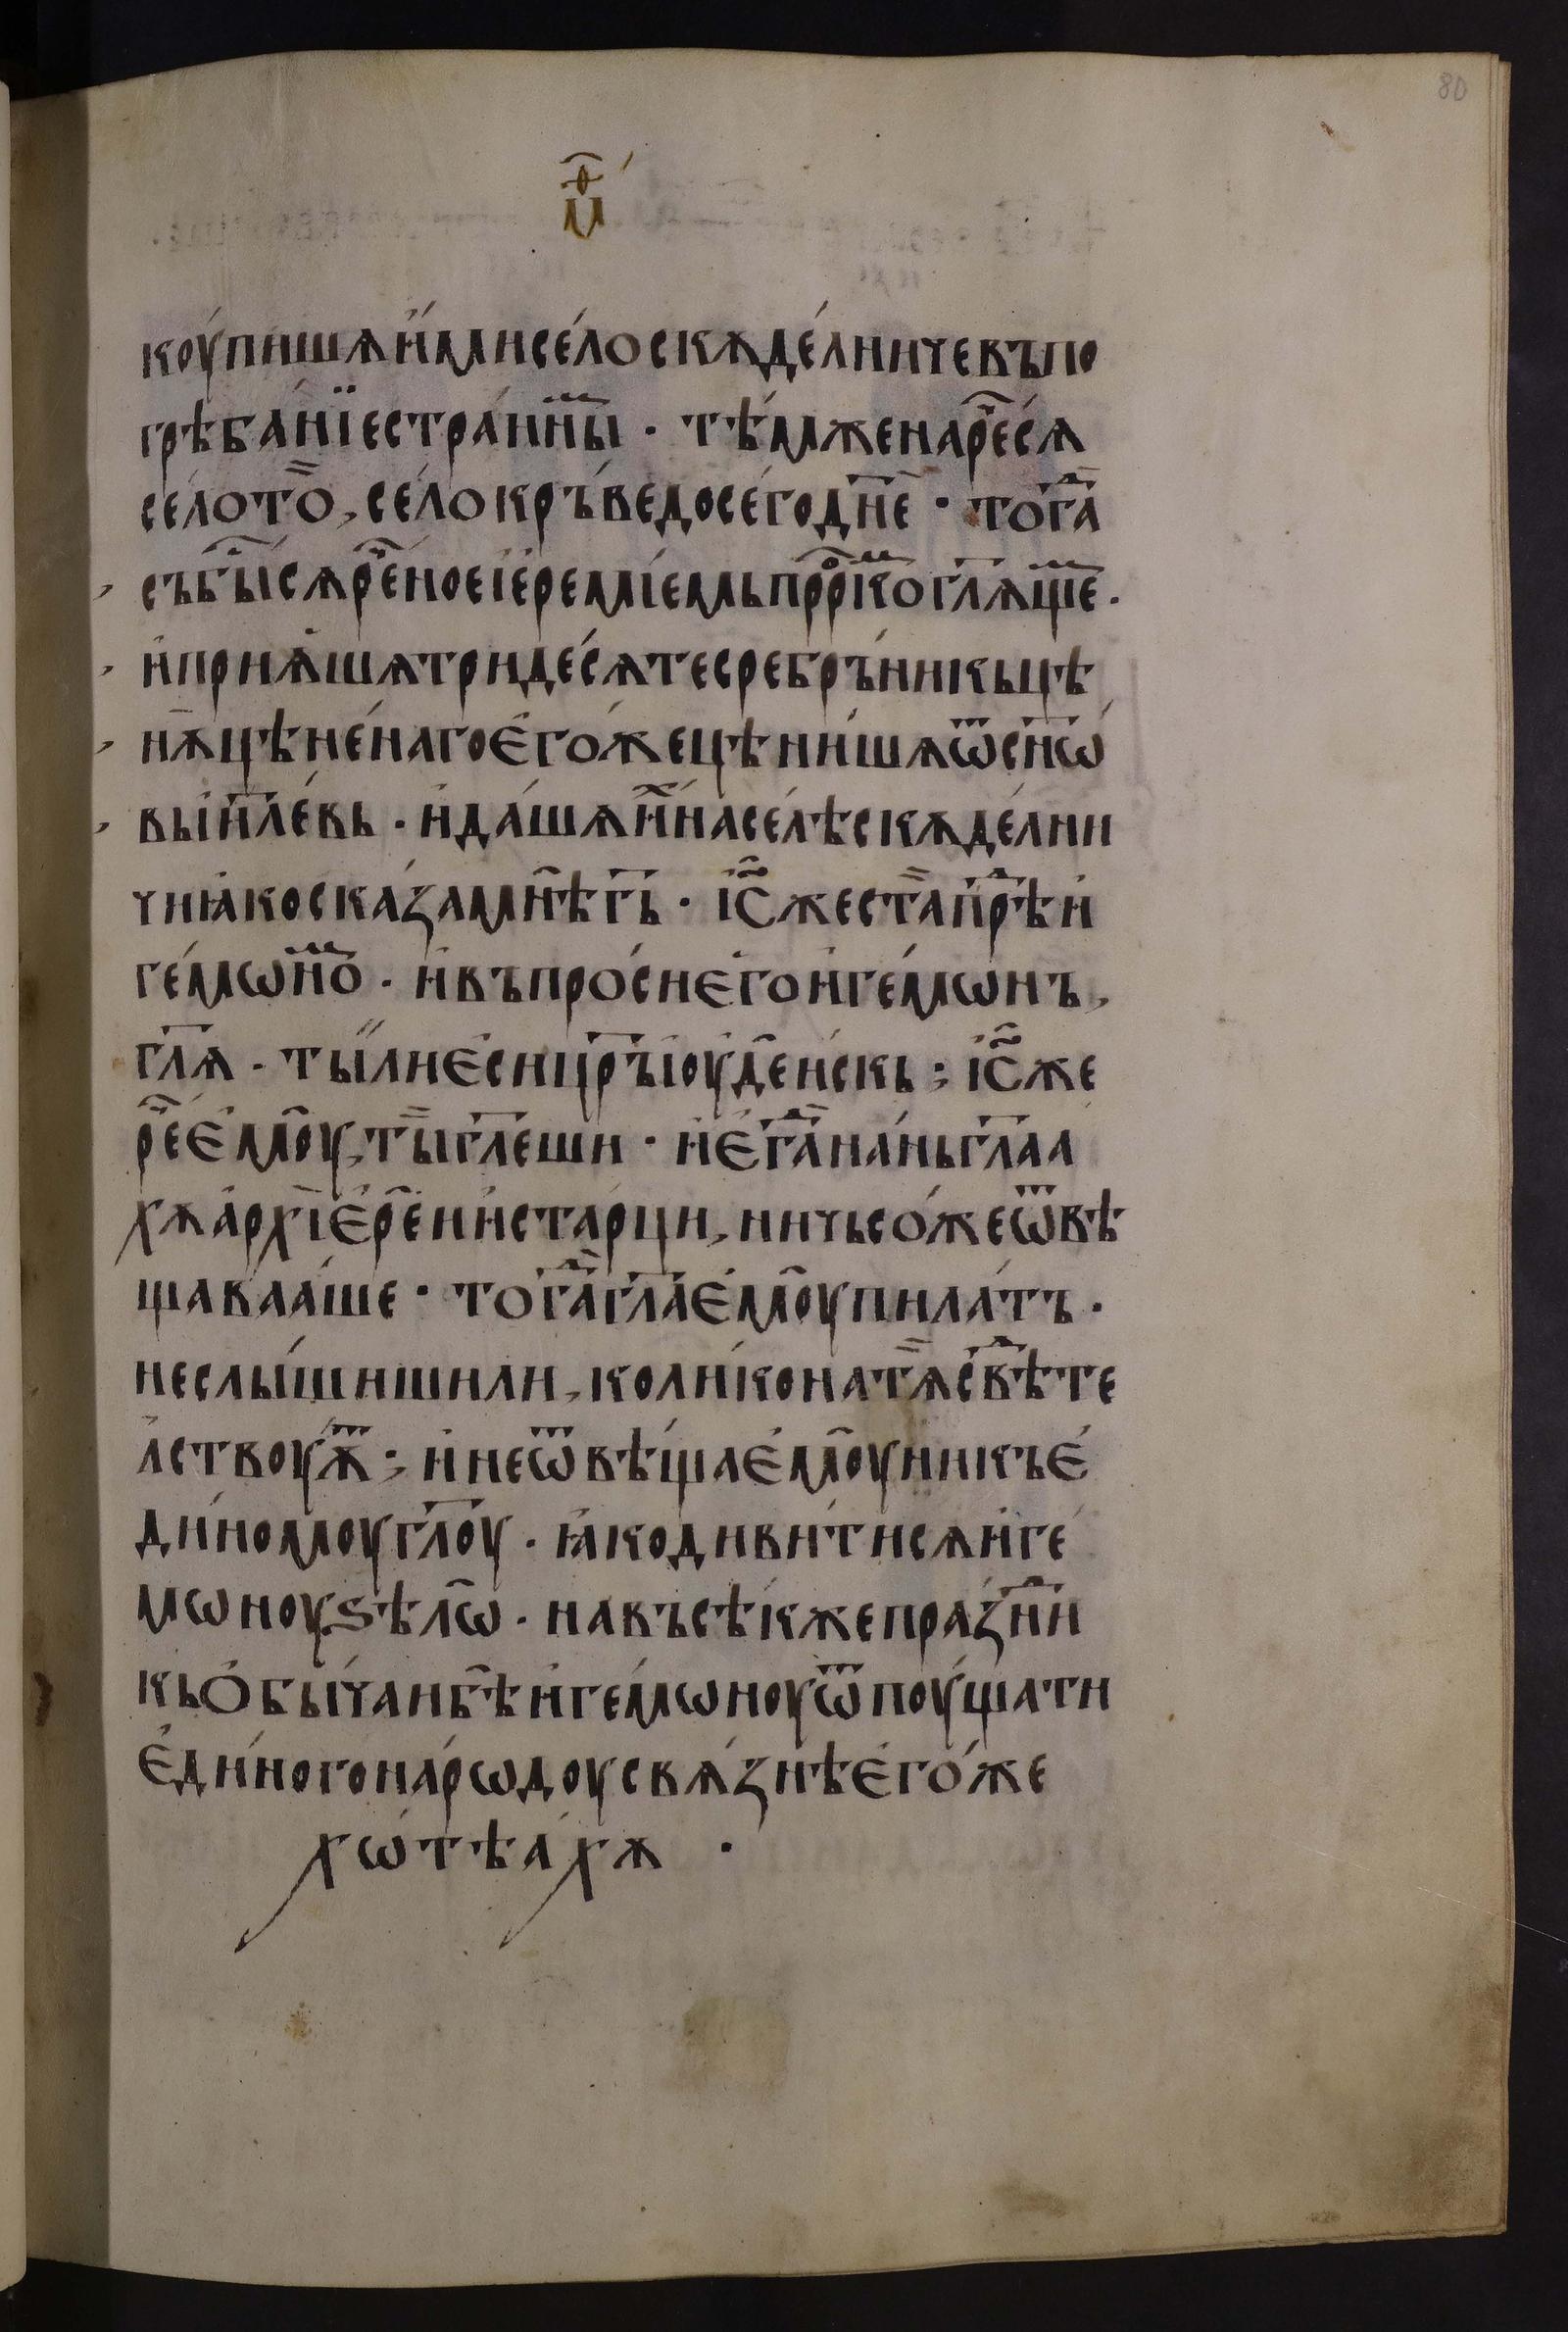 80
м҃ѳ
коу́пишѫ и҆́ми се́ло скѫде́лниче въ по
грѣба́нїе стра́нныⷨ · тѣ́мже нарⷱ҇е́сѧ
се́ло то̀, се́ло кръ́ве до сего днѐ · тогⷣа
събы́сѧ рⷱ҇е́ное і҆ере́мїемь прⷪ҇ркоⷨ гл҃ѧщеⷨ ·
и҆ прїѧ́шѧ три де́сѧте сребръ́никы цѣ
нѫ̀ цѣне́наго е҆го́же цѣни́шѧ ѿ сн҃ѡ́
вь і҆и҃ле́вь · и҆ да́шѧ ѧ҆̀ на се́лѣ скѫде́лни
чи ꙗ҆́ко сказа́ мнѣ̀ гь҃ · і҆с҃ же ста̀ прѣⷣ и҆
ге́мѡноⷨ · и҆ въпро́си е҆го и҆ге́мѡнъ,
гл҃ѧ · ты́ ли е҆си цр҃ъ і҆оуде́искь ; і҆с҃ же
рⷱ҇е е҆моу̀, ты̀ гл҃еши · и҆ е҆гⷣа̀ на́нь гл҃аа
хѫ а҆рхїе҆ре́и и҆ ста́рци, ничьсо́же ѿвѣ
щаваа́ше · тогⷣа̀ гл҃а е҆моу̀ пила́тъ ·
не слы́шиши ли, коли́ко на тѧ̀ свⷣѣте
лствоу́ѫⷮ ; и҆ не ѿвѣ́ща е҆моу̀ ни къ е҆
ди́номоу гл҃оу · ꙗ҆́ко диви́тисѧ и҆ге́
мѡноу ѕѣлѡ̀ · на въсѣ́кже пра́зⷣни
кь ѻ҆бы́чаи бѣ̀ и҆ге́мѡноу ѿпоу́щати
е҆ди́ного наро́дѡу свѧ́знѣ е҆го́же
хѡ́тѣа́хѫ ·